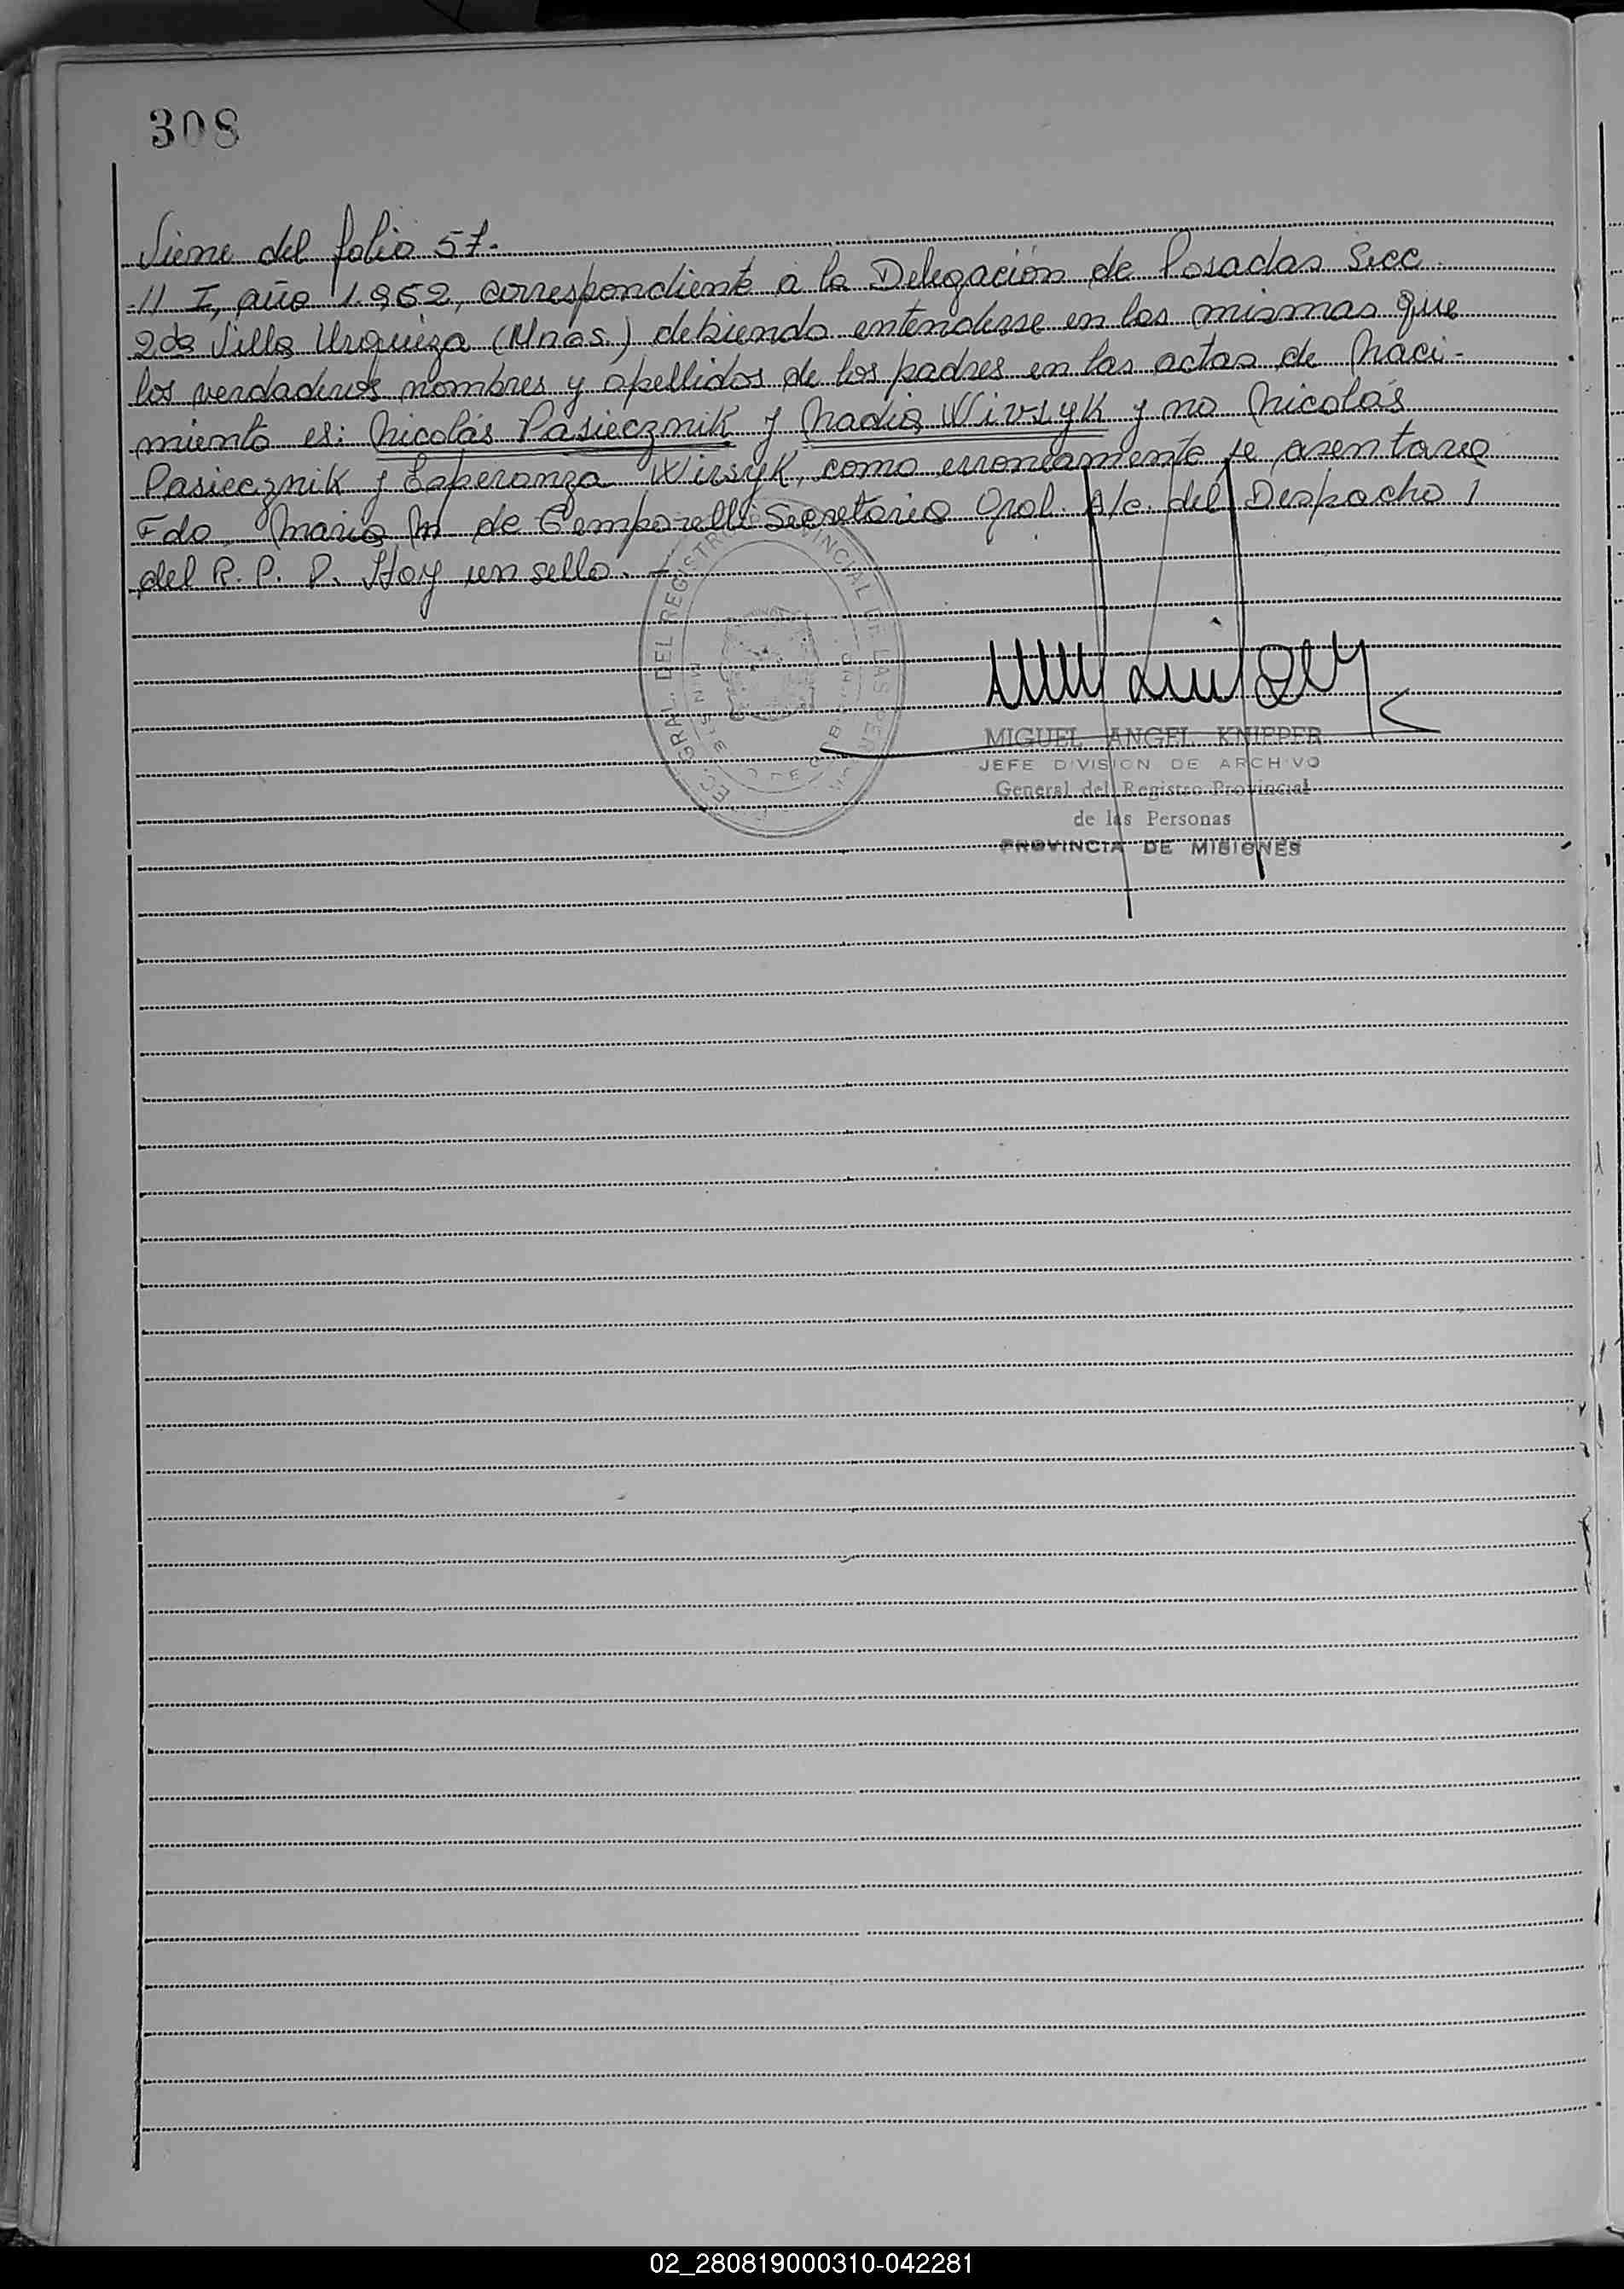 308
Viene del folio 57.
-// I, año 1.962, correspondiente a la Delegación de Posadas Secc.
2da Villa Urquiza (Mnes.) debiendo entenderse en las mismas que
los verdaderos nombres y apellidos de los padres en las actas de Naci-
miento es: Nicolás Pasiecznik y Nadia Wirsyk y no Nicolás
Pasiecznik y Esperanza Wirsyk, como erroneamente se asentara
Fdo. Maria M de Gemporelli Secretaria Gral. A/c. del Despacho
del R. P. P. Hay un sello.-
GRAL. DEL REGISTRO PROVINCIAL DE LAS PER
MIGUEL ANGEL KNIEPER
JEFE DIVISION DE ARCHIVO
General del Registro Provincial
de las Personas
PROVINCIA DE MISIONES
02_280819000310-042281